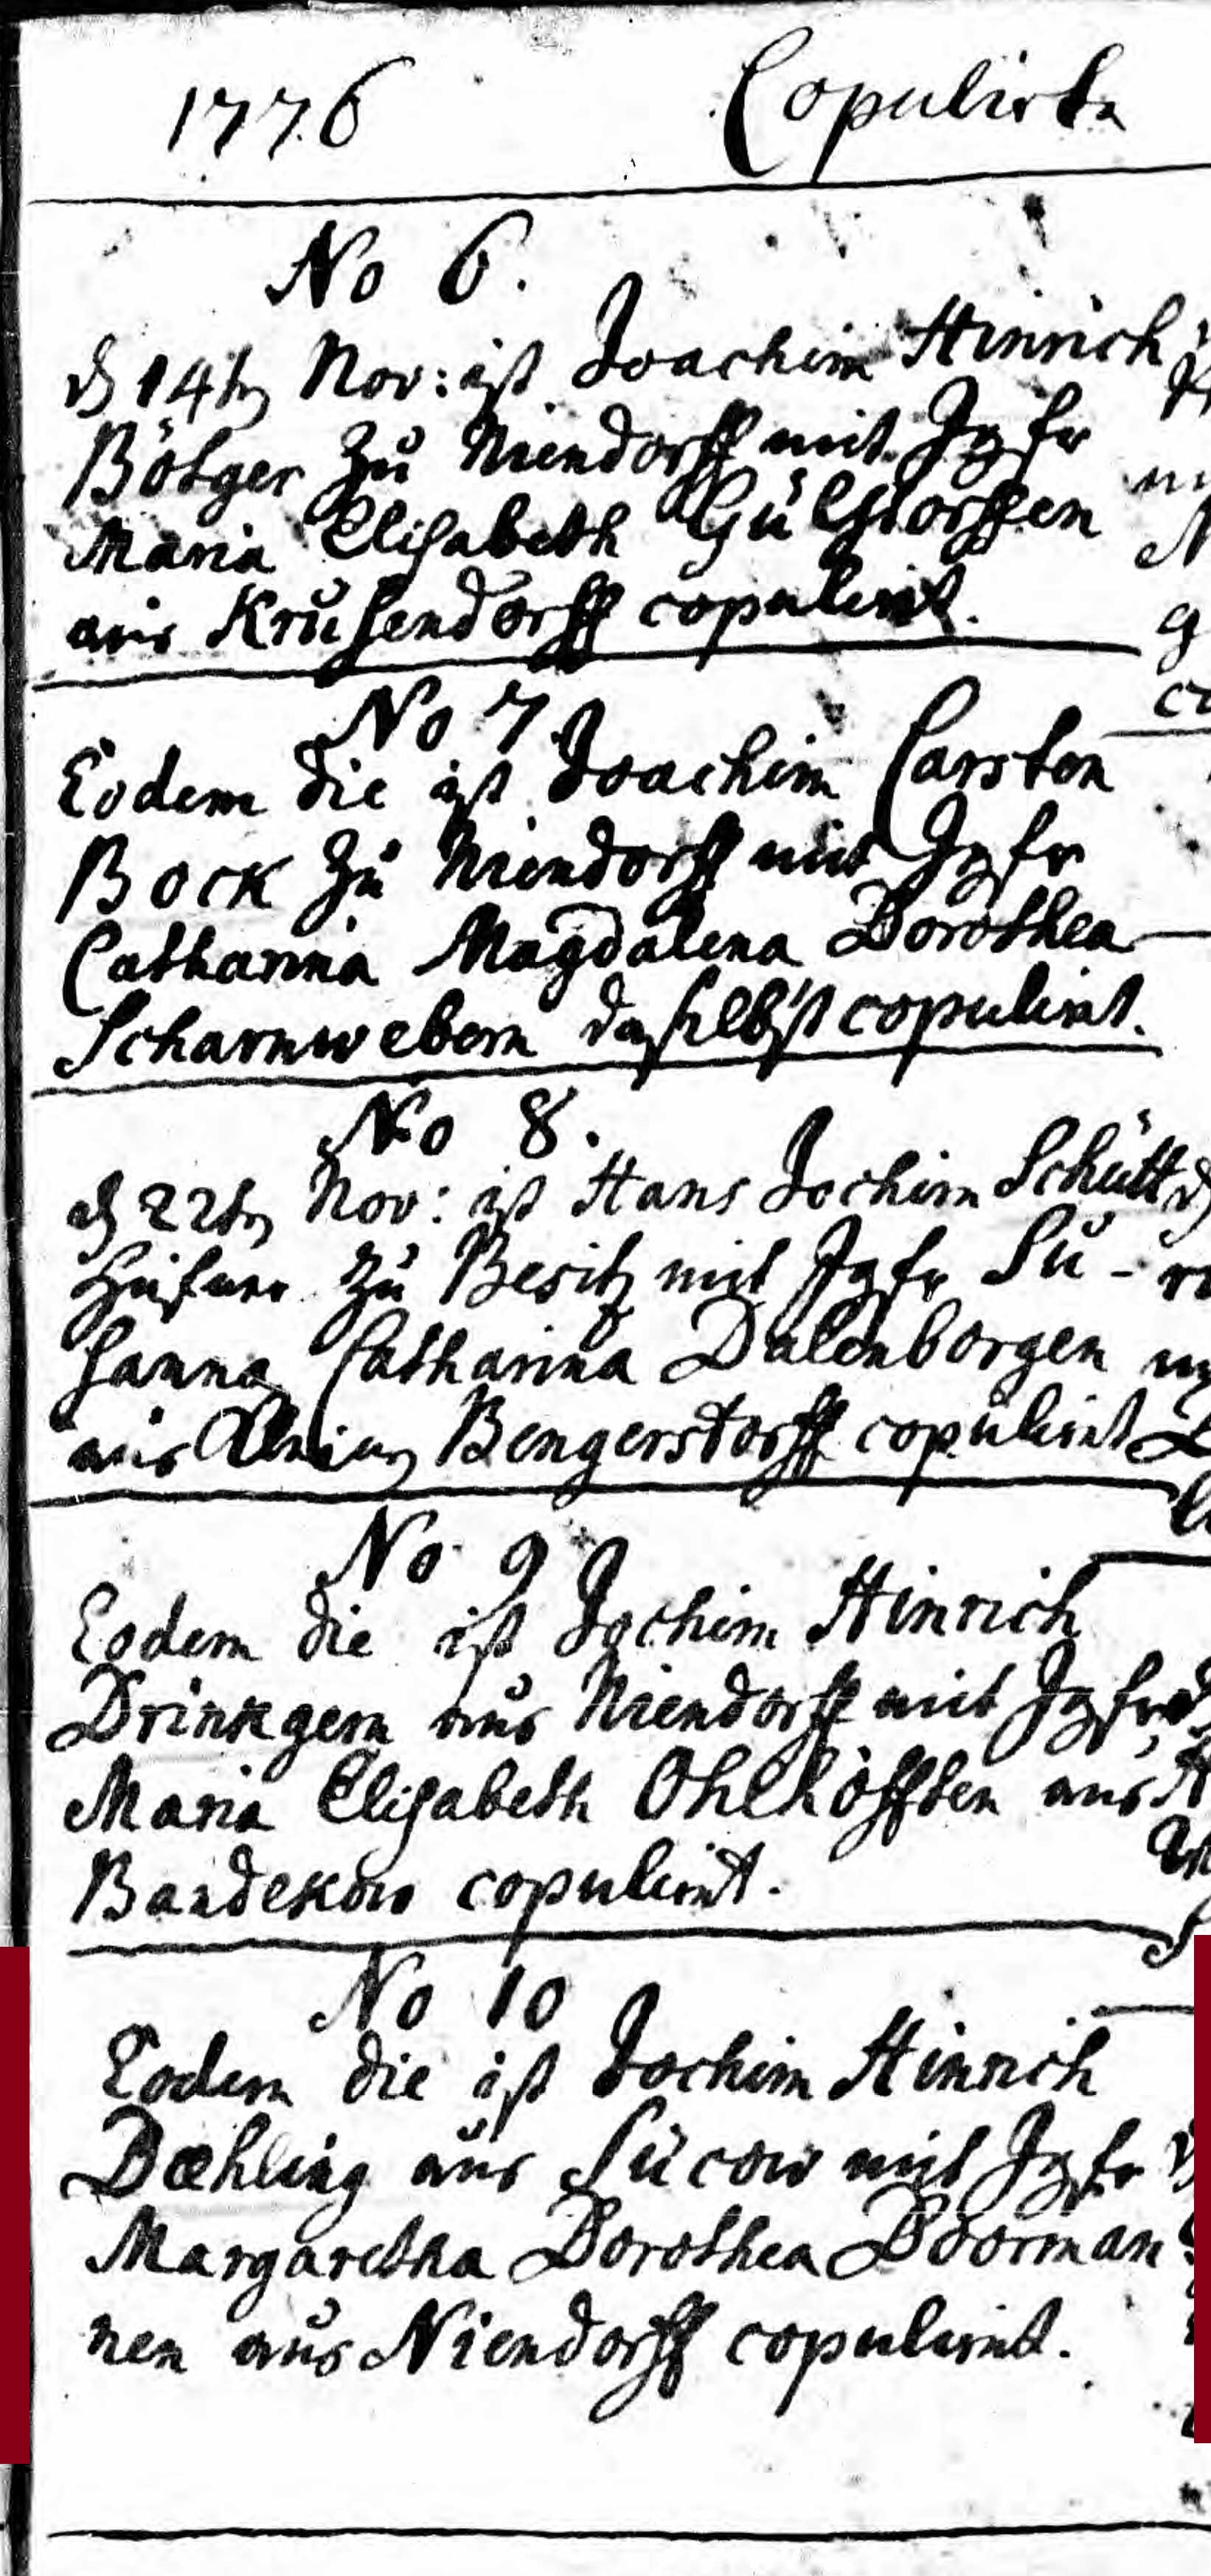 1776 Copulirte
No 6.
d 14t Nov: ist Joachim Hinrich
Bötger zu Niendorff mit Jgfr
Maria Elisabeth Gülstorffen
aus Krusendorff copulirt.
No 7.
Eodem die ist Joachim Carsten
Bock zu Niendorff mit Jgfr
Catharina Magdalena Dorothea
Scharnwebern daselbst copulirt.
No 8.
d 22t Nov: ist Hans Jochim Schütt
zu Besitz mit Jgfr Su-
sanna Catharina Dalenborgen
aus Bengerstorff copulirt
No 9
Eodem die ist Jochim Hinrich
Drinkgern aus Niendorff mit Jgfr
Maria Elisabeth Ohlhöfften aus
Bandekow copulirt.
No 10
Eodem die ist Jochim Hinrich
Dæhling aus Sücow mit Jgfr
Margaretha Dorothea Doorman
nen aus Niendorff copulirt.